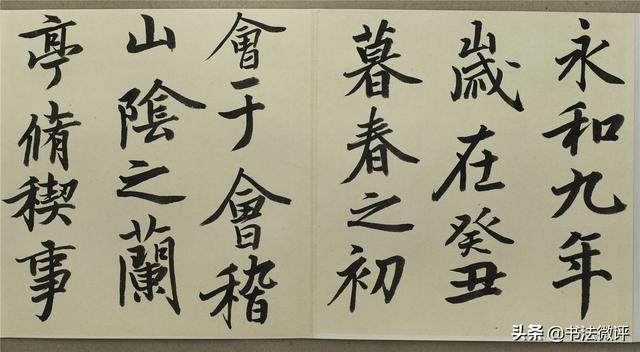 永和九年
歲在癸丑
暮春之初
會于會稽
山陰之蘭
亭脩稧事
头条 @书法微评